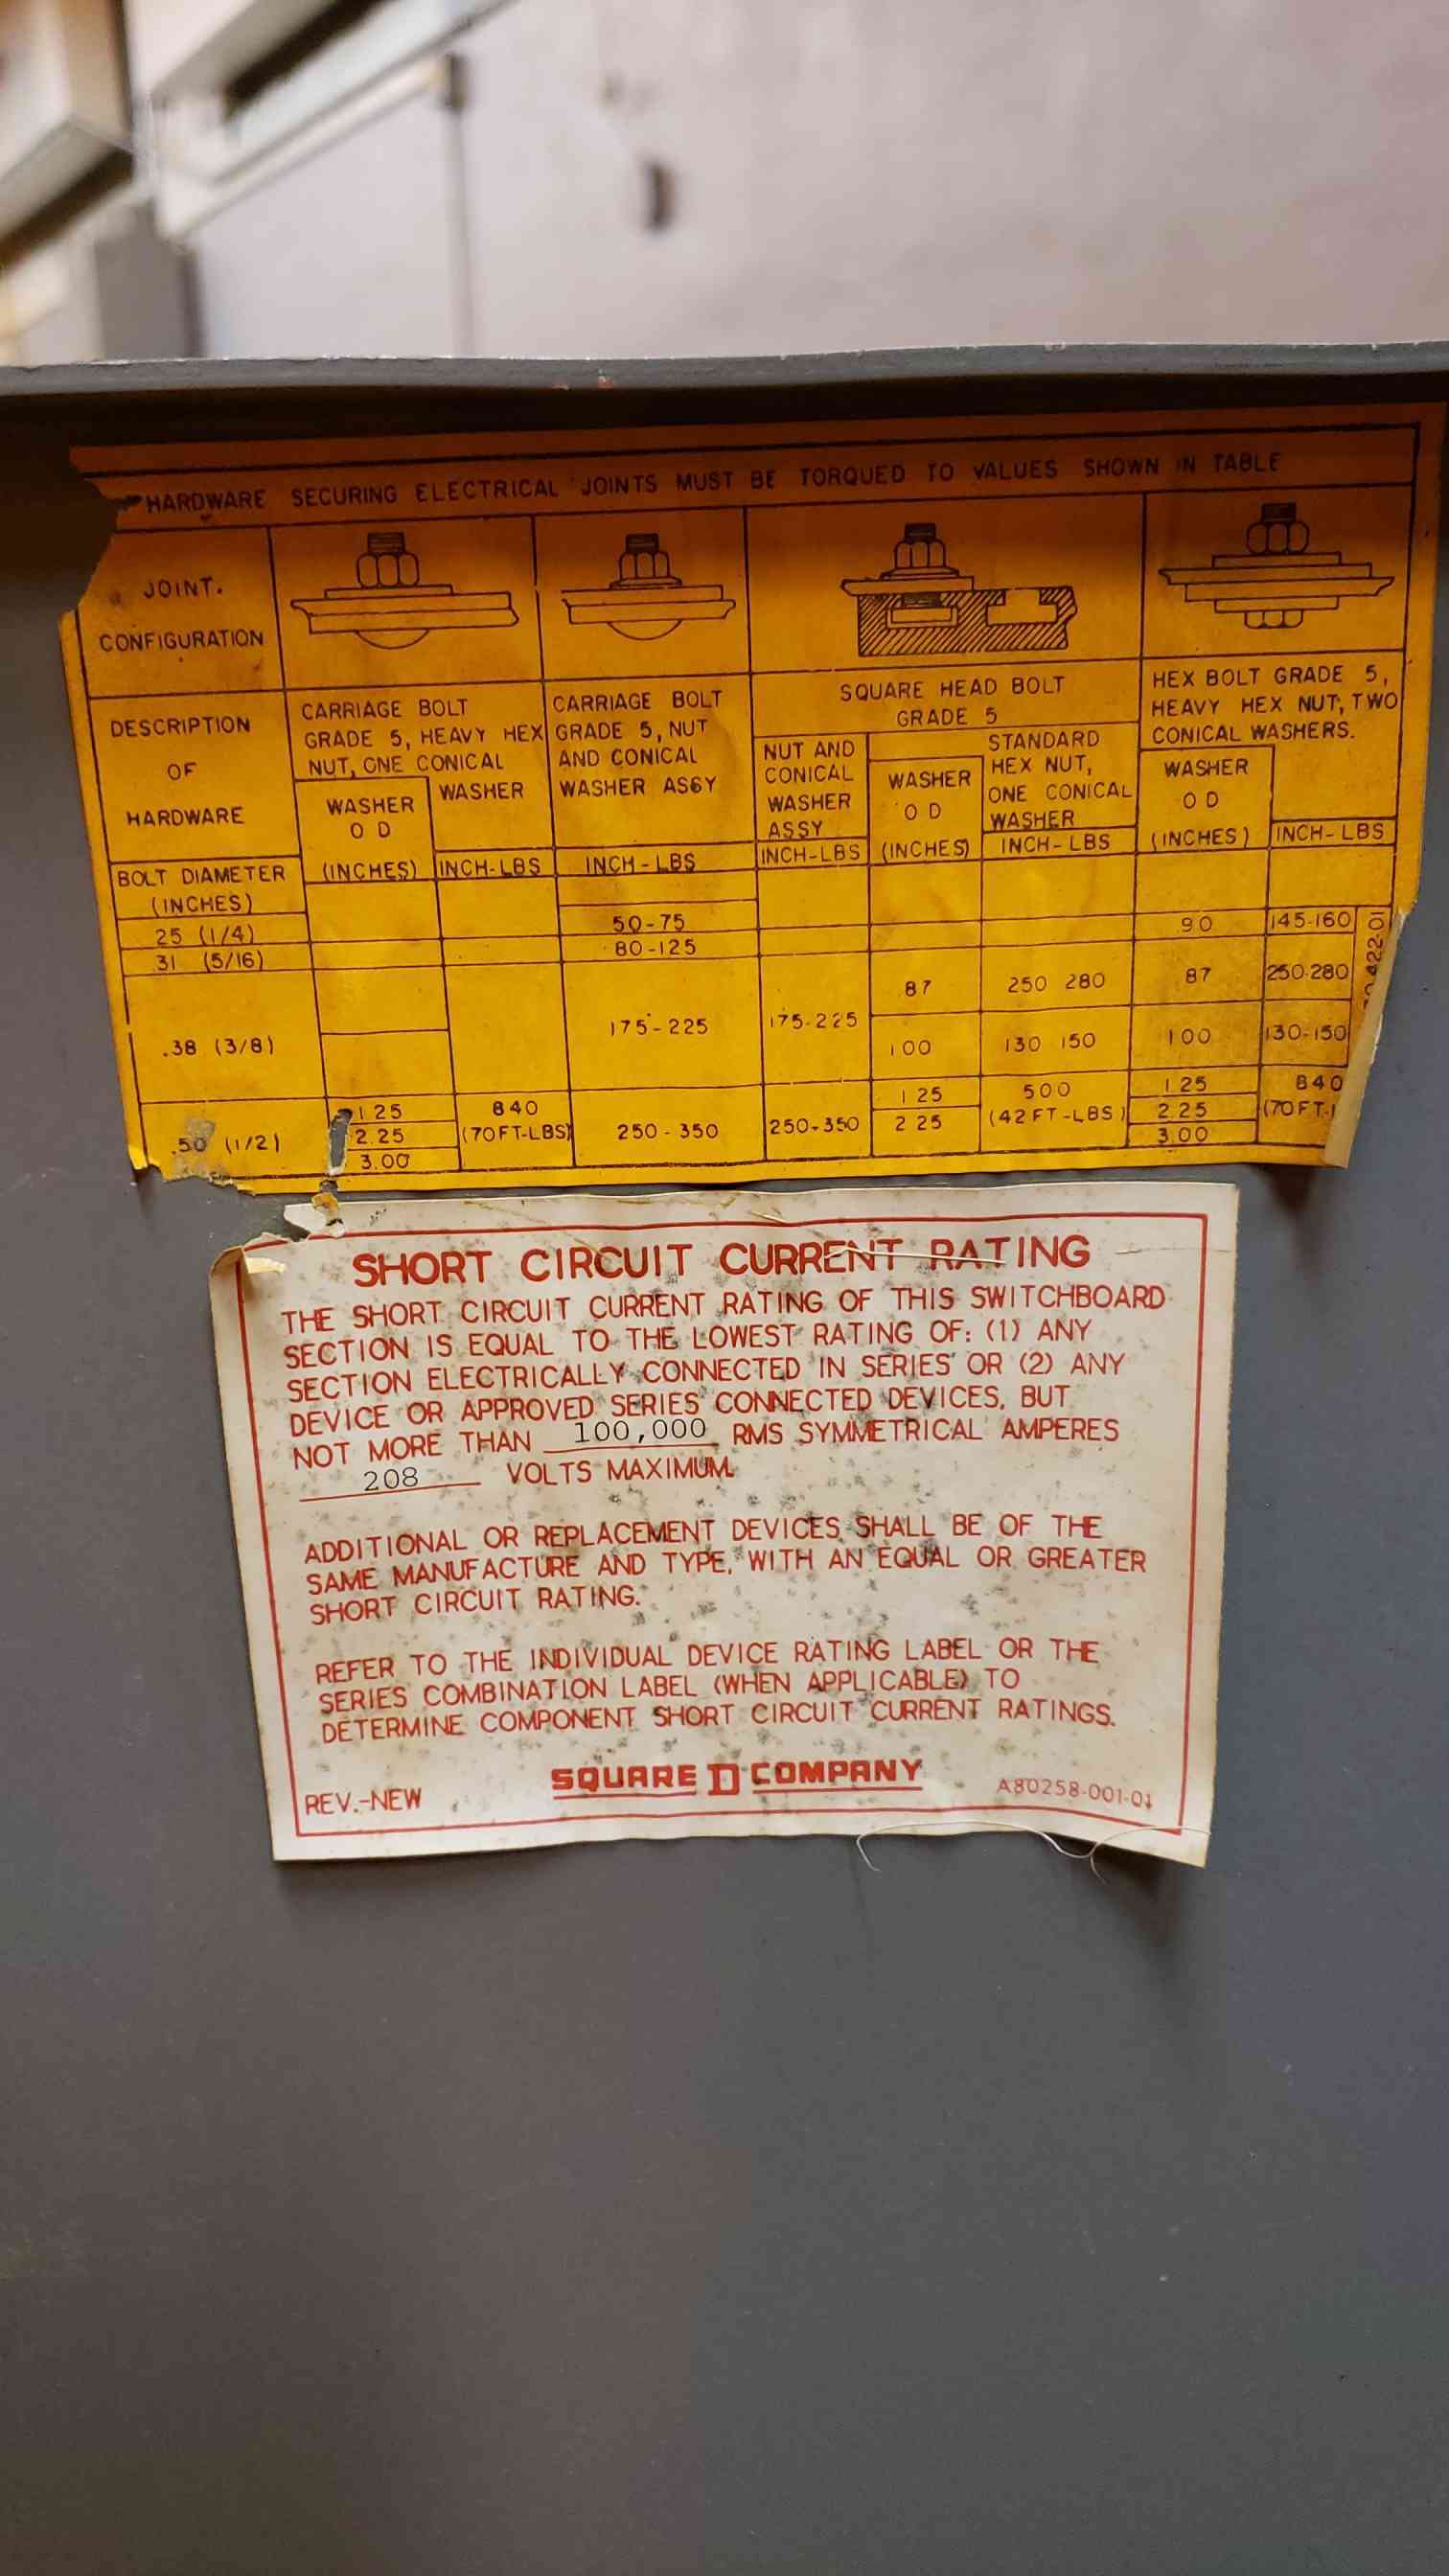 HARDWARE SECURING ELECTRICAL JOINTS MUST BE TORQUED TO VALUES SHOWN IN TABLE
JOINT.
CONFIGURATION
DESCRIPTION
OF
HARDWARE
CARRIAGE BOLT
GRADE 5, HEAVY HEX
NUT, ONE CONICAL
WASHER
WASHER
O D
(INCHES)
INCH-LBS
CARRIAGE BOLT
GRADE 5, NUT
AND CONICAL
WASHER ASSY
INCH-LBS
SQUARE HEAD BOLT
GRADE 5
NUT AND
CONICAL
WASHER
ASSY
INCH-LBS
WASHER
O D
(INCHES)
STANDARD
HEX NUT,
ONE CONICAL
WASHER
INCH-LBS
HEX BOLT GRADE 5,
HEAVY HEX NUT, TWO
CONICAL WASHERS.
WASHER
O D
(INCHES)
INCH-LBS
BOLT DIAMETER
(INCHES)
25 (1/4) 50-75 90 145-160
31 (5/16) 80-125
.38 (3/8) 175-225 175-225
87 250 280 87 250-280
100 130 150 100 130-150
.50 (1/2)
1 25
2.25
3.00
840
(70FT-LBS)
250-350 250-350
1 25
2 25
500
(42FT-LBS)
1 25
2 25
3 00
840
(70FT-
422-01
SHORT CIRCUIT CURRENT RATING
THE SHORT CIRCUIT CURRENT RATING OF THIS SWITCHBOARD
SECTION IS EQUAL TO THE LOWEST RATING OF: (1) ANY
SECTION ELECTRICALLY CONNECTED IN SERIES OR (2) ANY
DEVICE OR APPROVED SERIES CONNECTED DEVICES, BUT
NOT MORE THAN 100,000 RMS SYMMETRICAL AMPERES
208 VOLTS MAXIMUM.
ADDITIONAL OR REPLACEMENT DEVICES SHALL BE OF THE
SAME MANUFACTURE AND TYPE, WITH AN EQUAL OR GREATER
SHORT CIRCUIT RATING.
REFER TO THE INDIVIDUAL DEVICE RATING LABEL OR THE
SERIES COMBINATION LABEL (WHEN APPLICABLE) TO
DETERMINE COMPONENT SHORT CIRCUIT CURRENT RATINGS.
SQUARE D COMPANY
REV.-NEW
A80258-001-01